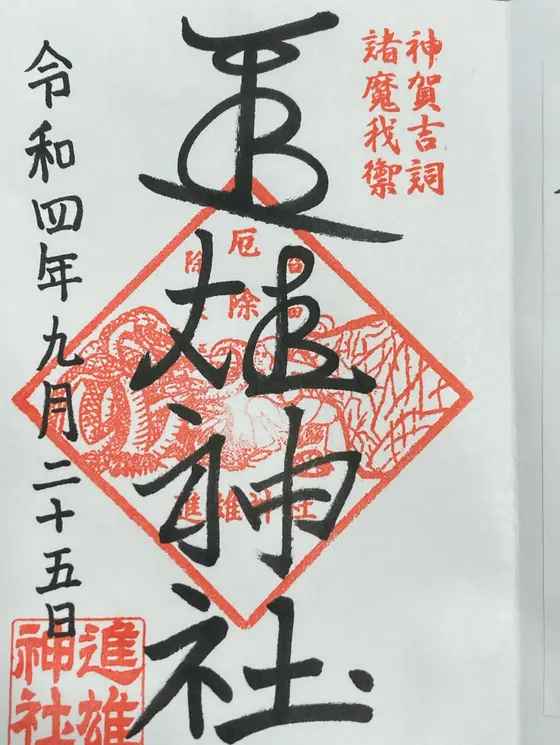 神賀吉詞
諸魔我禦
進雄神社
厄除
進雄神社
令和四年九月二十五日
進雄
神社